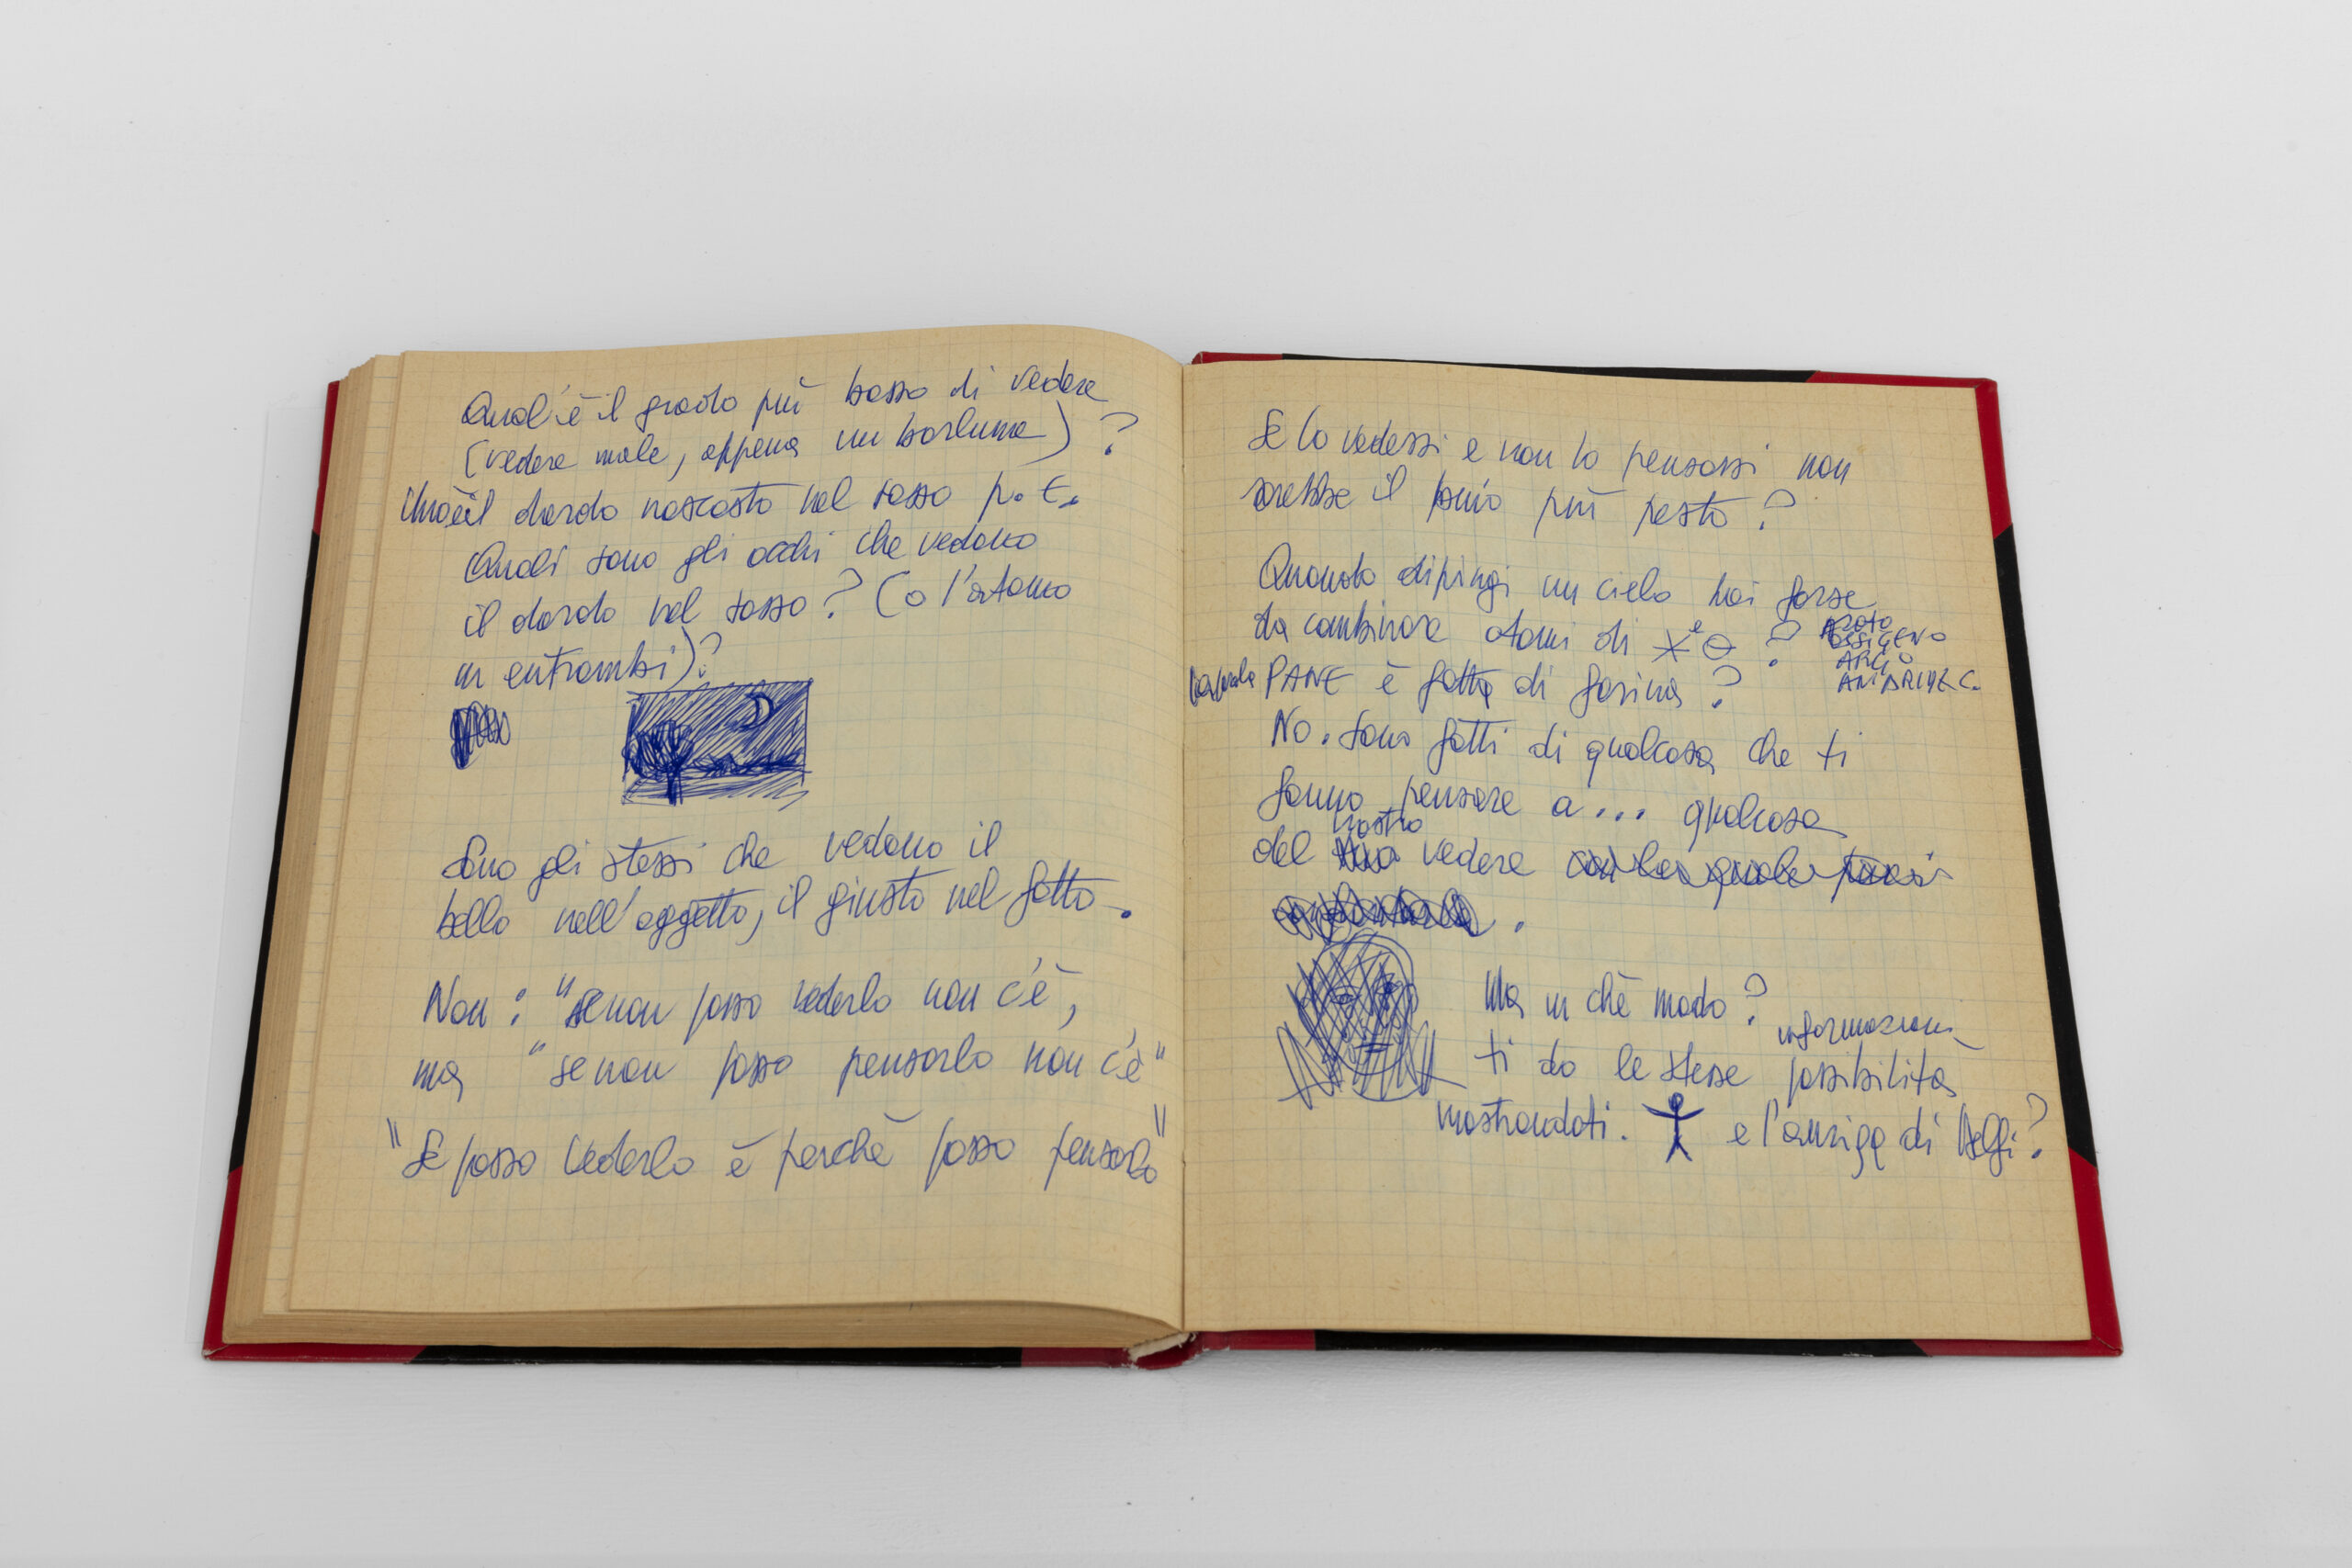 Qual'è il grado più basso di vedere
(vedere male, appena un barlume) ?
il dardo nascosto nel sasso p. e.
Quali sono gli occhi che vedono
il dardo nel sasso? (o l'atomo
in entrambi)?
Sono gli stessi che vedono il
bello nell'oggetto, il giusto nel fatto.
Non: "se non posso vederlo non c'è,
ma "se non posso pensarlo non c'è"
"Se posso vederlo è perchè posso pensarlo"
Se lo vedessi e non lo pensassi non
sarebbe il buio più pesto?
Quando dipingi un cielo hai forse
da combinare atomi di e ?
AZOTO
OSSIGENO
ARGO
ANIDRIDE C.
la parola PANE è fatta di farina?
No. sono fatti di qualcosa che ti
fanno pensare a... qualcosa
nostro
del vedere .
Ma in chè modo?
informazioni
ti do le stesse possibilità
mostrandoti. e l'auriga di Delfi?